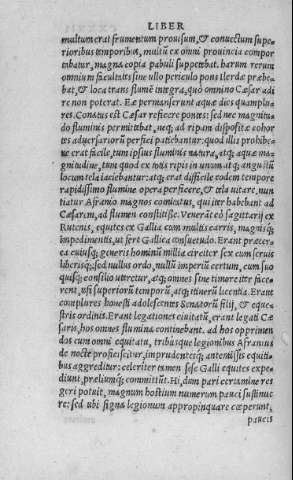 LIBER
multum erat frumentum prouisum, & conuectum supe-
rioribus temporibus, multū ex omni prouincia compor
tabatur, magna copia pabuli suppetebat. harum rerum
omnium facultates sine ullo periculo pons Ilerdæ præbe-
bat, & loca trans flumē integra, quò omnino Cæsar adi
re non poterat. Eæ permanserunt aquæ dies complu-
res. Conatus est Cæsar reficere pontes: sed nec magnitu-
do fluminis permittebat, neq; ad ripam dispositæ cohor
tes aduersariorū perfici patiebantur. quod illis prohibe-
re erat facile, tum ipsius fluminis natura, atq; aquæ ma-
gnitudine, tum quod ex totis ripis in unum atq; angustū
locum tela iaciebantur: atq; erat difficile eodem tempore
rapidissimo flumine opera perficere, & tela uitare. nun
tiatur Afranio magnos comeatus, qui iter habebant ad
Cæsarem, ad flumen constitisse. Venerāt eò sagittarij ex
Rutenis, equites ex Gallia cum multis carris, magnisq;
impedimentis, ut fert Gallica consuetudo. Erant præterea
ea cuiusq; generis hominū millia circiter sex cum seruis
liberisq;: sed nullus ordo, nullū imperiū certum, cum suo
quisq; consilio uteretur, atq; omnes sine timore iter face-
rent, usi superiorū temporū, atq; itinerū licentia. Erant
complures honesti adolescentes Senatorū filij, & eque-
stris ordinis. Erant legationes ciuitatū, erant legati Cæ
saris, hos omnes flumina continebant. ad hos opprimen
dos cum omni equitatu, tribusque legionibus Afranius
de nocte proficiscitur, imprudentesq; antemissis equiti-
bus aggreditur: celeriter tamen sese Galli equites expe-
diunt, præliumq; committūt. Hi, dum pari certamine res
geri potuit, magnum hostium numerum pauci sustinue
re: sed ubi signa legionum appropinquare cœperunt,
paucis